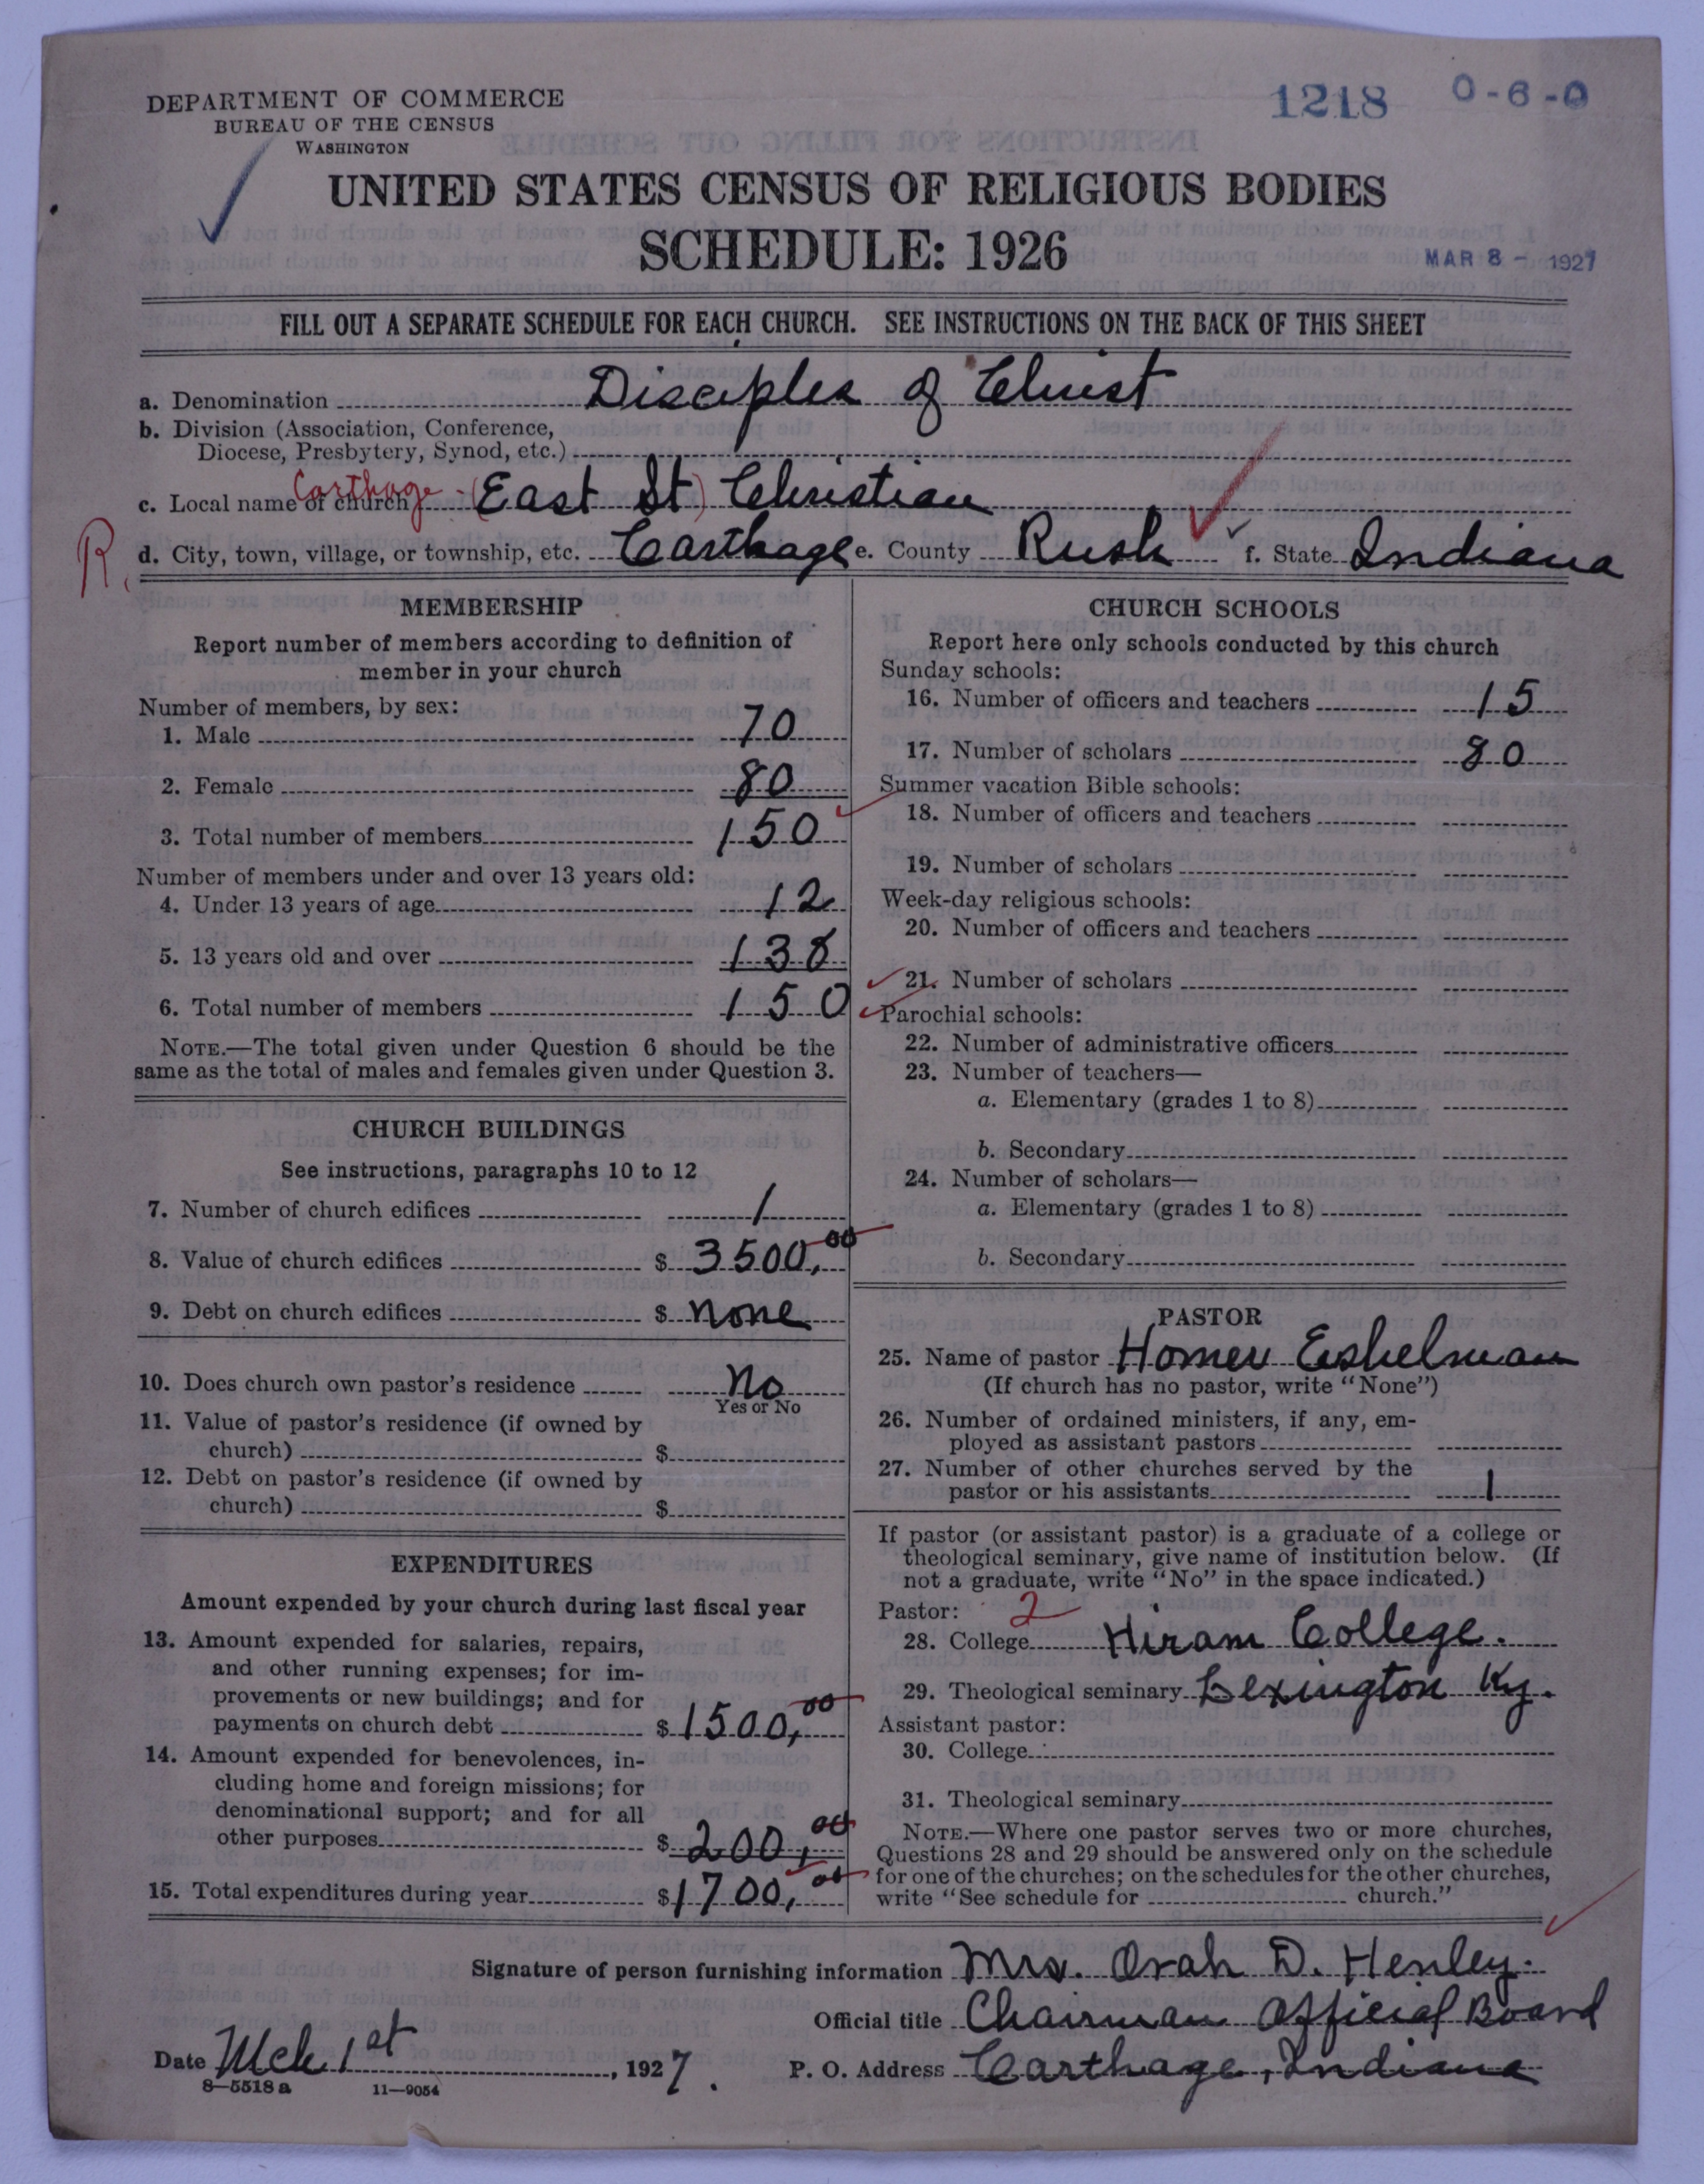 DEPARTMENT OF COMMERCE
BUREAU OF THE CENSUS
WASHINGTON
1218 0-6-0
UNITED STATES CENSUS OF RELIGIOUS BODIES
SCHEDULE: 1926
MAR 8 - 1927
FILL OUT A SEPARATE SCHEDULE FOR EACH CHURCH. SEE INSTRUCTIONS ON THE BACK OF THIS SHEET
a. Denomination Disciples of Christ
b. Division (Association, Conference,
Diocese, Presbytery, Synod, etc.)
c. Local name of church Carthage - (East St) Christian
R.
d. City, town, village, or township, etc. Carthage e. County Rush f. State Indiana
MEMBERSHIP
Report number of members according to definition of
member in your church
Number of members, by sex:
1. Male 70
2. Female 80
3. Total number of members 150
Number of members under and over 13 years old:
4. Under 13 years of age 12
5. 13 years old and over 138
6. Total number of members 150
NOTE.—The total given under Question 6 should be the
same as the total of males and females given under Question 3.
CHURCH BUILDINGS
See instructions, paragraphs 10 to 12
7. Number of church edifices 1
8. Value of church edifices $ 3500,00
9. Debt on church edifices $ none
10. Does church own pastor's residence No
Yes or No
11. Value of pastor's residence (if owned by
church) $
12. Debt on pastor's residence (if owned by
church) $
EXPENDITURES
Amount expended by your church during last fiscal year
13. Amount expended for salaries, repairs,
and other running expenses; for im-
provements or new buildings; and for
payments on church debt $ 1500,00
14. Amount expended for benevolences, in-
cluding home and foreign missions; for
denominational support; and for all
other purposes $ 200,00
15. Total expenditures during year $ 1700,00
CHURCH SCHOOLS
Report here only schools conducted by this church
Sunday schools:
16. Number of officers and teachers 15
17. Number of scholars 80
Summer vacation Bible schools:
18. Number of officers and teachers
19. Number of scholars
Week-day religious schools:
20. Number of officers and teachers
21. Number of scholars
Parochial schools:
22. Number of administrative officers
23. Number of teachers—
a. Elementary (grades 1 to 8)
b. Secondary
24. Number of scholars—
a. Elementary (grades 1 to 8)
b. Secondary
PASTOR
25. Name of pastor Homer Eshelman
(If church has no pastor, write "None")
26. Number of ordained ministers, if any, em-
ployed as assistant pastors
27. Number of other churches served by the
pastor or his assistants 1
If pastor (or assistant pastor) is a graduate of a college or
theological seminary, give name of institution below. (If
not a graduate, write "No" in the space indicated.)
Pastor: 2
28. College Hiram College.
29. Theological seminary Lexington Ky.
Assistant pastor:
30. College
31. Theological seminary
NOTE.—Where one pastor serves two or more churches,
Questions 28 and 29 should be answered only on the schedule
for one of the churches; on the schedules for the other churches,
write "See schedule for church."
Signature of person furnishing information Mrs. Orah D. Henley.
Official title Chairman Official Board
Date Mch 1st, 1927. P. O. Address Carthage, Indiana
8—5518 a 11—9054